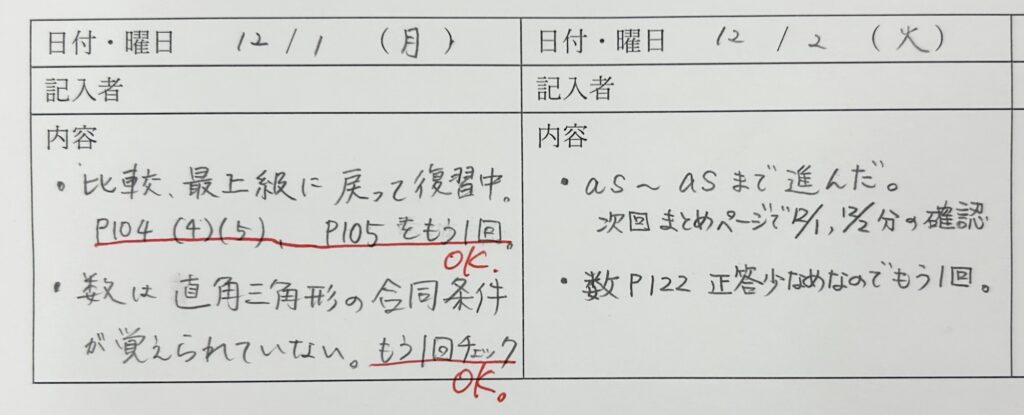 日付・曜日 12/1 (月)
記入者
内容
・比較、最上級に戻って復習中。
P104 (4)(5)、 P105をもう1回。
OK.
・数は直角三角形の合同条件
が覚えられていない。もう1回チェック
OK。
日付・曜日 12/2 (火)
記入者
内容
・as~asまで進んだ。
次回まとめページで12/1,12/2分の確認
・数P122 正答少なめなのでもう1回。